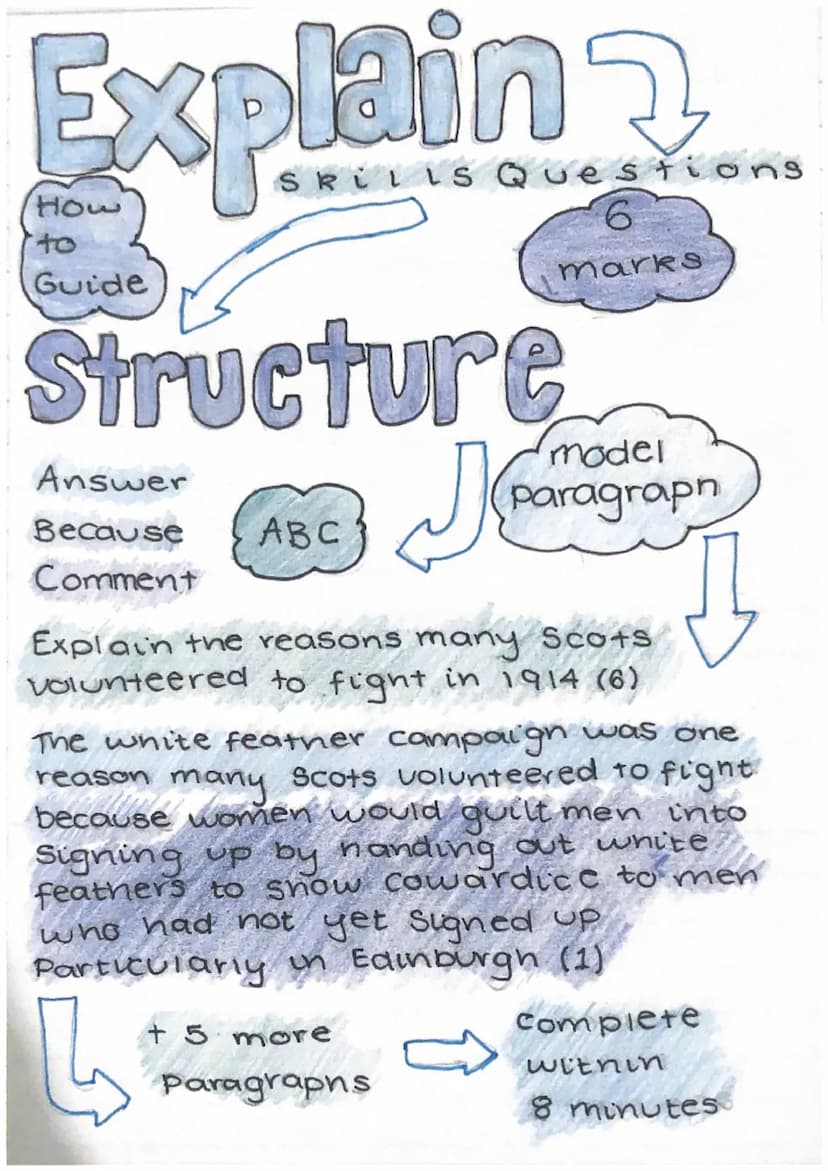 Explain
Skills Questions
How
to
Guide
6
marks
Structure
model
paragraph
Answer
Because
Comment
ABC
Explain the reasons many Scots
volunteered to fight in 1914 (6)
The white feather campaign was one
reason many Scots volunteered to fight
because women would guilt men into
signing up by handing out white
feathers to show cowardice to men
who had not yet signed up
particularly in Edinburgh (1)
+ 5 more
paragraphs
complete
within
8 minutes